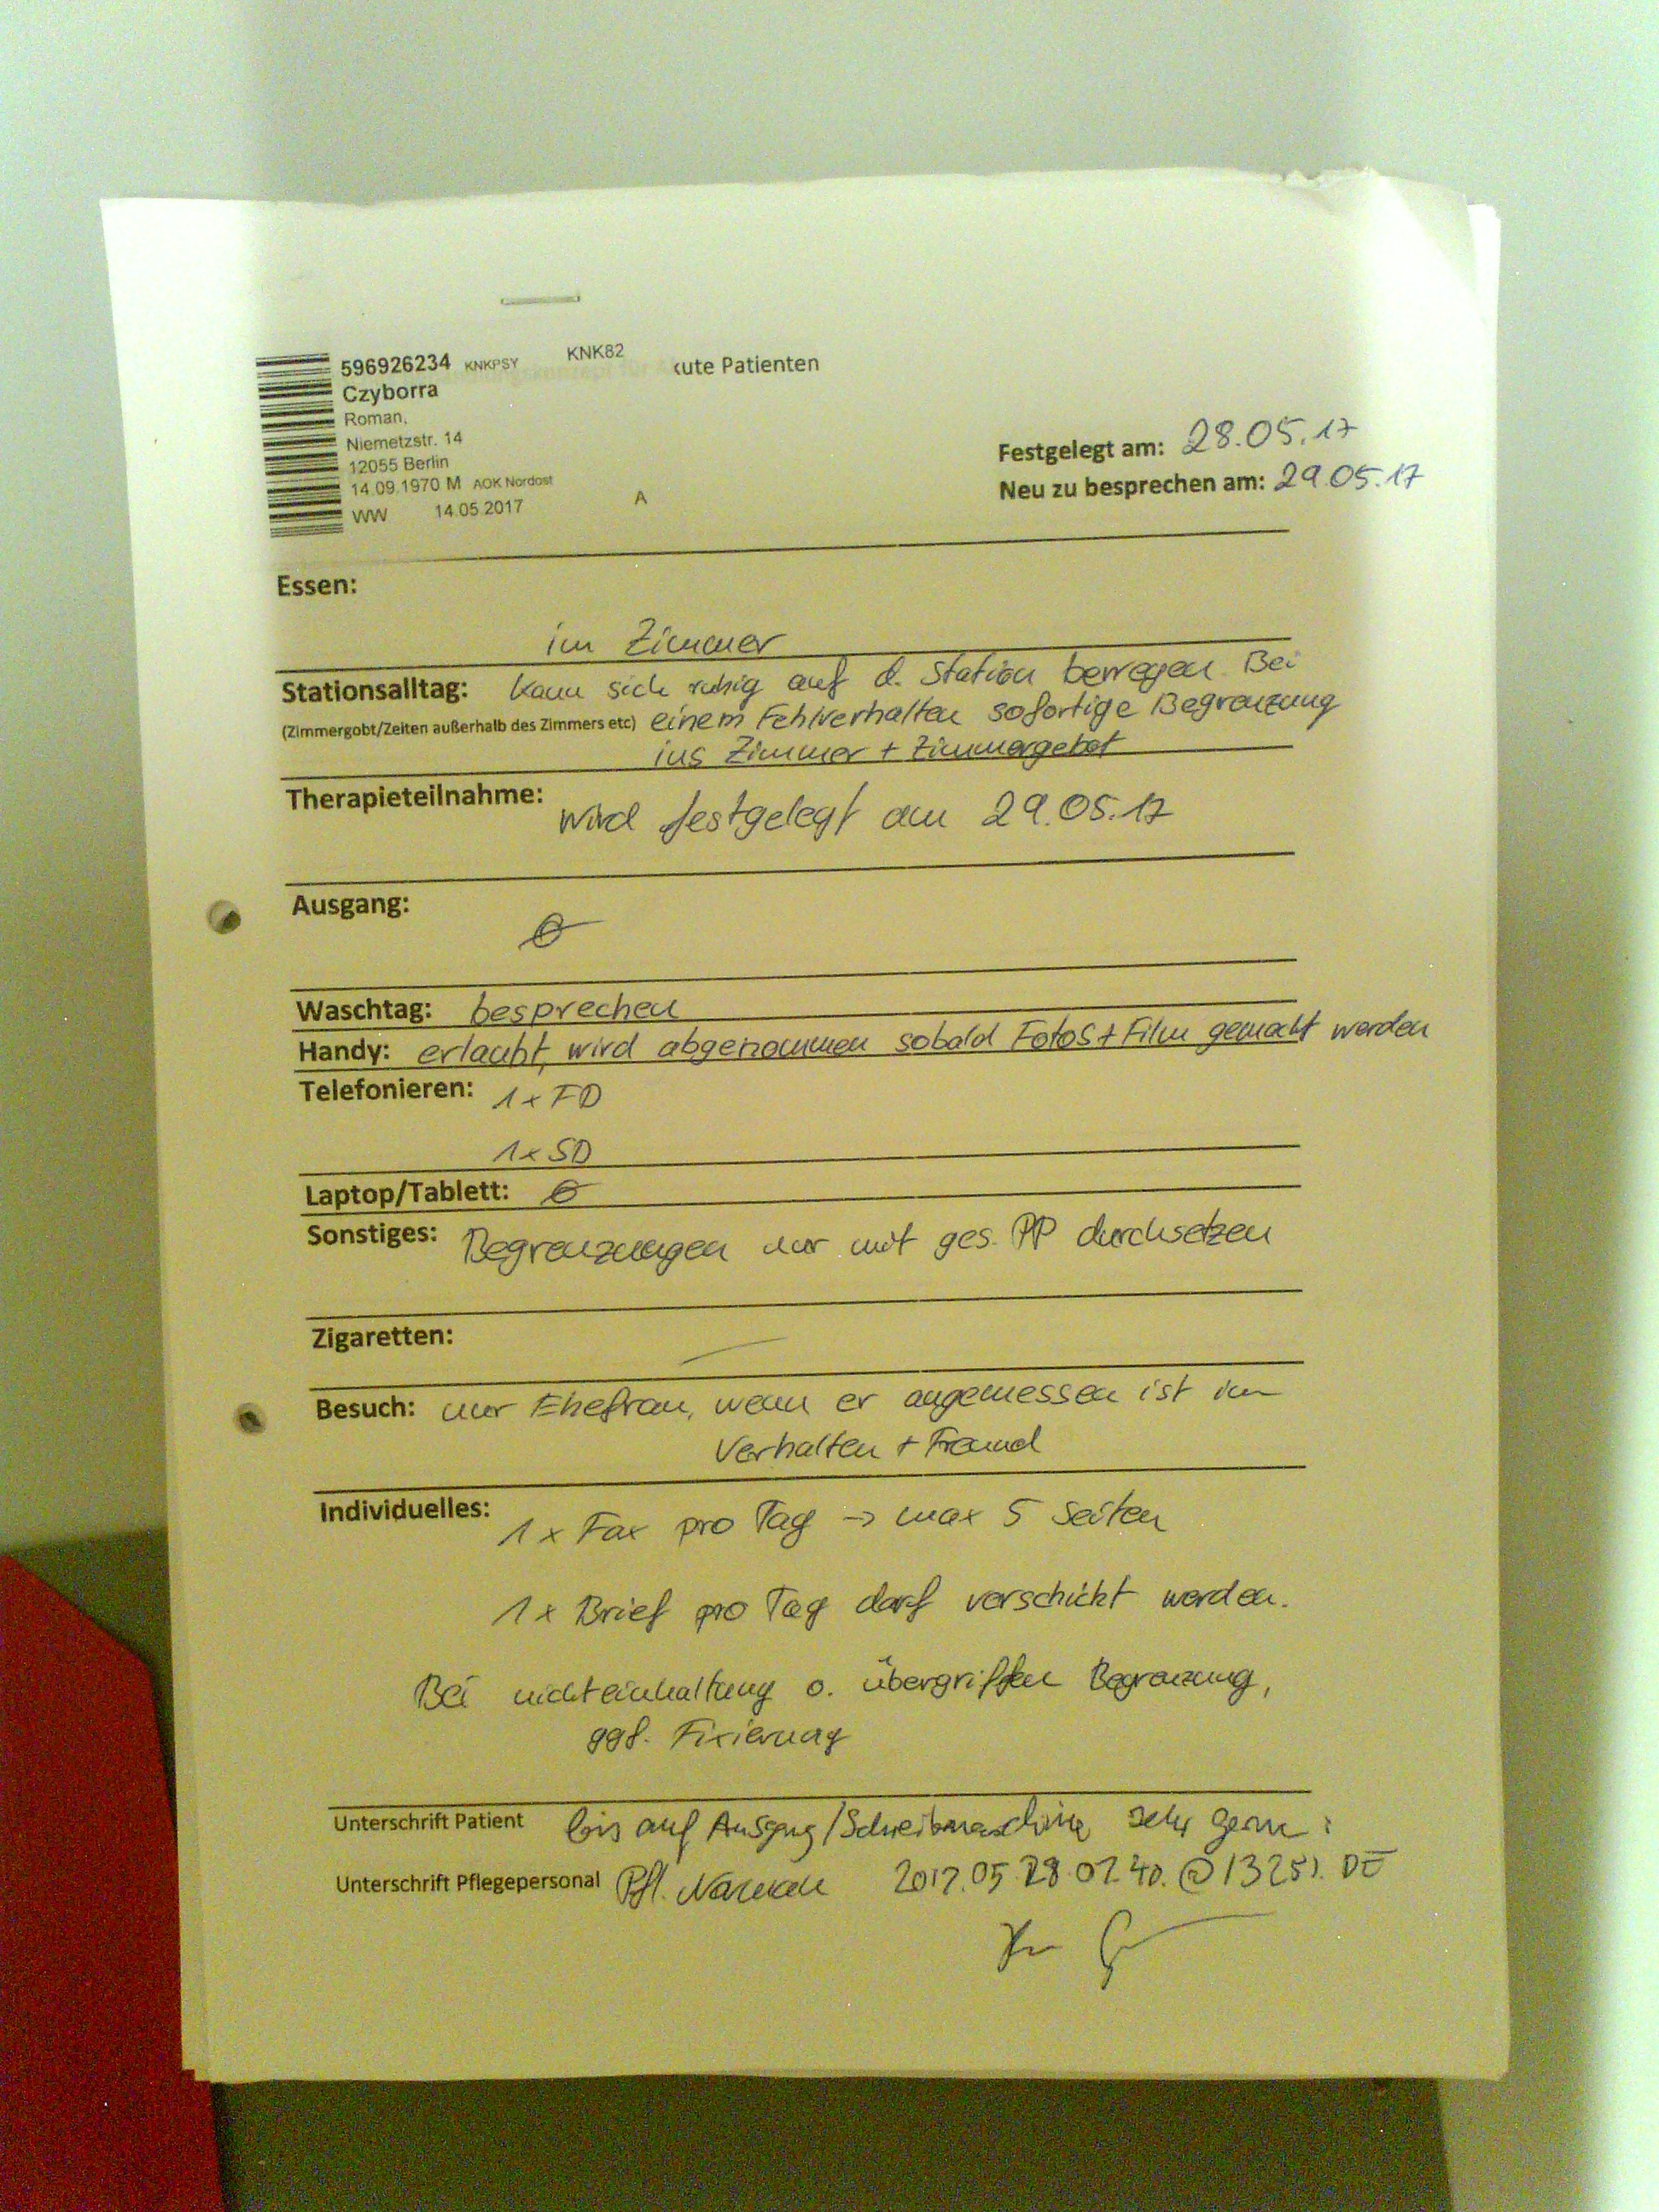 596926234 KNKPSY KNK82
kute Patienten
Czyborra
Roman,
Niemetzstr. 14
12055 Berlin
14.09.1970 M AOK Nordost
WW 14.05.2017 A
Festgelegt am: 28.05.17
Neu zu besprechen am: 29.05.17
Essen:
im Zimmer
Stationsalltag: kann sich ruhig auf d. Station bewegen. Bei
(Zimmergobt/Zeiten außerhalb des Zimmers etc) einem Fehlverhalten sofortige Begrenzung
ins Zimmer + Zimmergebot
Therapieteilnahme: wird festgelegt am 29.05.17
Ausgang: Ø
Waschtag: besprechen
Handy: erlaubt, wird abgenommen sobald Fotos + Film gemacht werden
Telefonieren: 1x FD
1x SD
Laptop/Tablett: Ø
Sonstiges: Begrenzungen nur mit ges. PP durchsetzen
Zigaretten: —
Besuch: nur Ehefrau, wenn er angemessen ist im
Verhalten + Freund
Individuelles: 1x Fax pro Tag -> max 5 Seiten
1x Brief pro Tag darf verschickt werden.
Bei nichteinhaltung o. übergriffen Begrenzung,
ggf. Fixierung
Unterschrift Patient bis auf Ausgang/Schreibmaschine sehr gerne :
Unterschrift Pflegepersonal Pfl. 2017.05.28